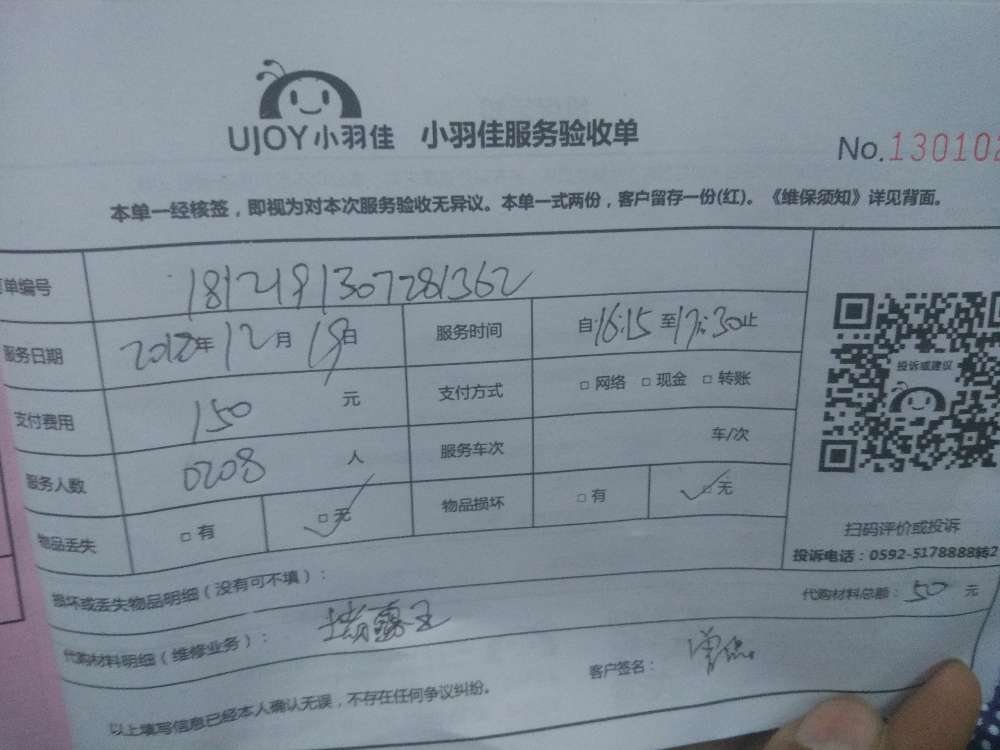 UJOY小羽佳 小羽佳服务验收单
No.130102
本单一经核签，即视为对本次服务验收无异议。本单一式两份，客户留存一份(红)。《维保须知》详见背面。
单编号 1812191307281362
服务日期 2018年12月19日 服务时间 自16:15至17:30止
支付费用 150 元 支付方式 □网络 □现金 □转账
服务人数 0208 人 服务车次 车/次
物品丢失 □有 □无 物品损坏 □有 □无
投诉或建议
扫码评价或投诉
投诉电话：0592-5178888转2
损坏或丢失物品明细（没有可不填）：
代购材料总额：50 元
代购材料明细（维修业务）：
客户签名：
以上填写信息已经本人确认无误，不存在任何争议纠纷。